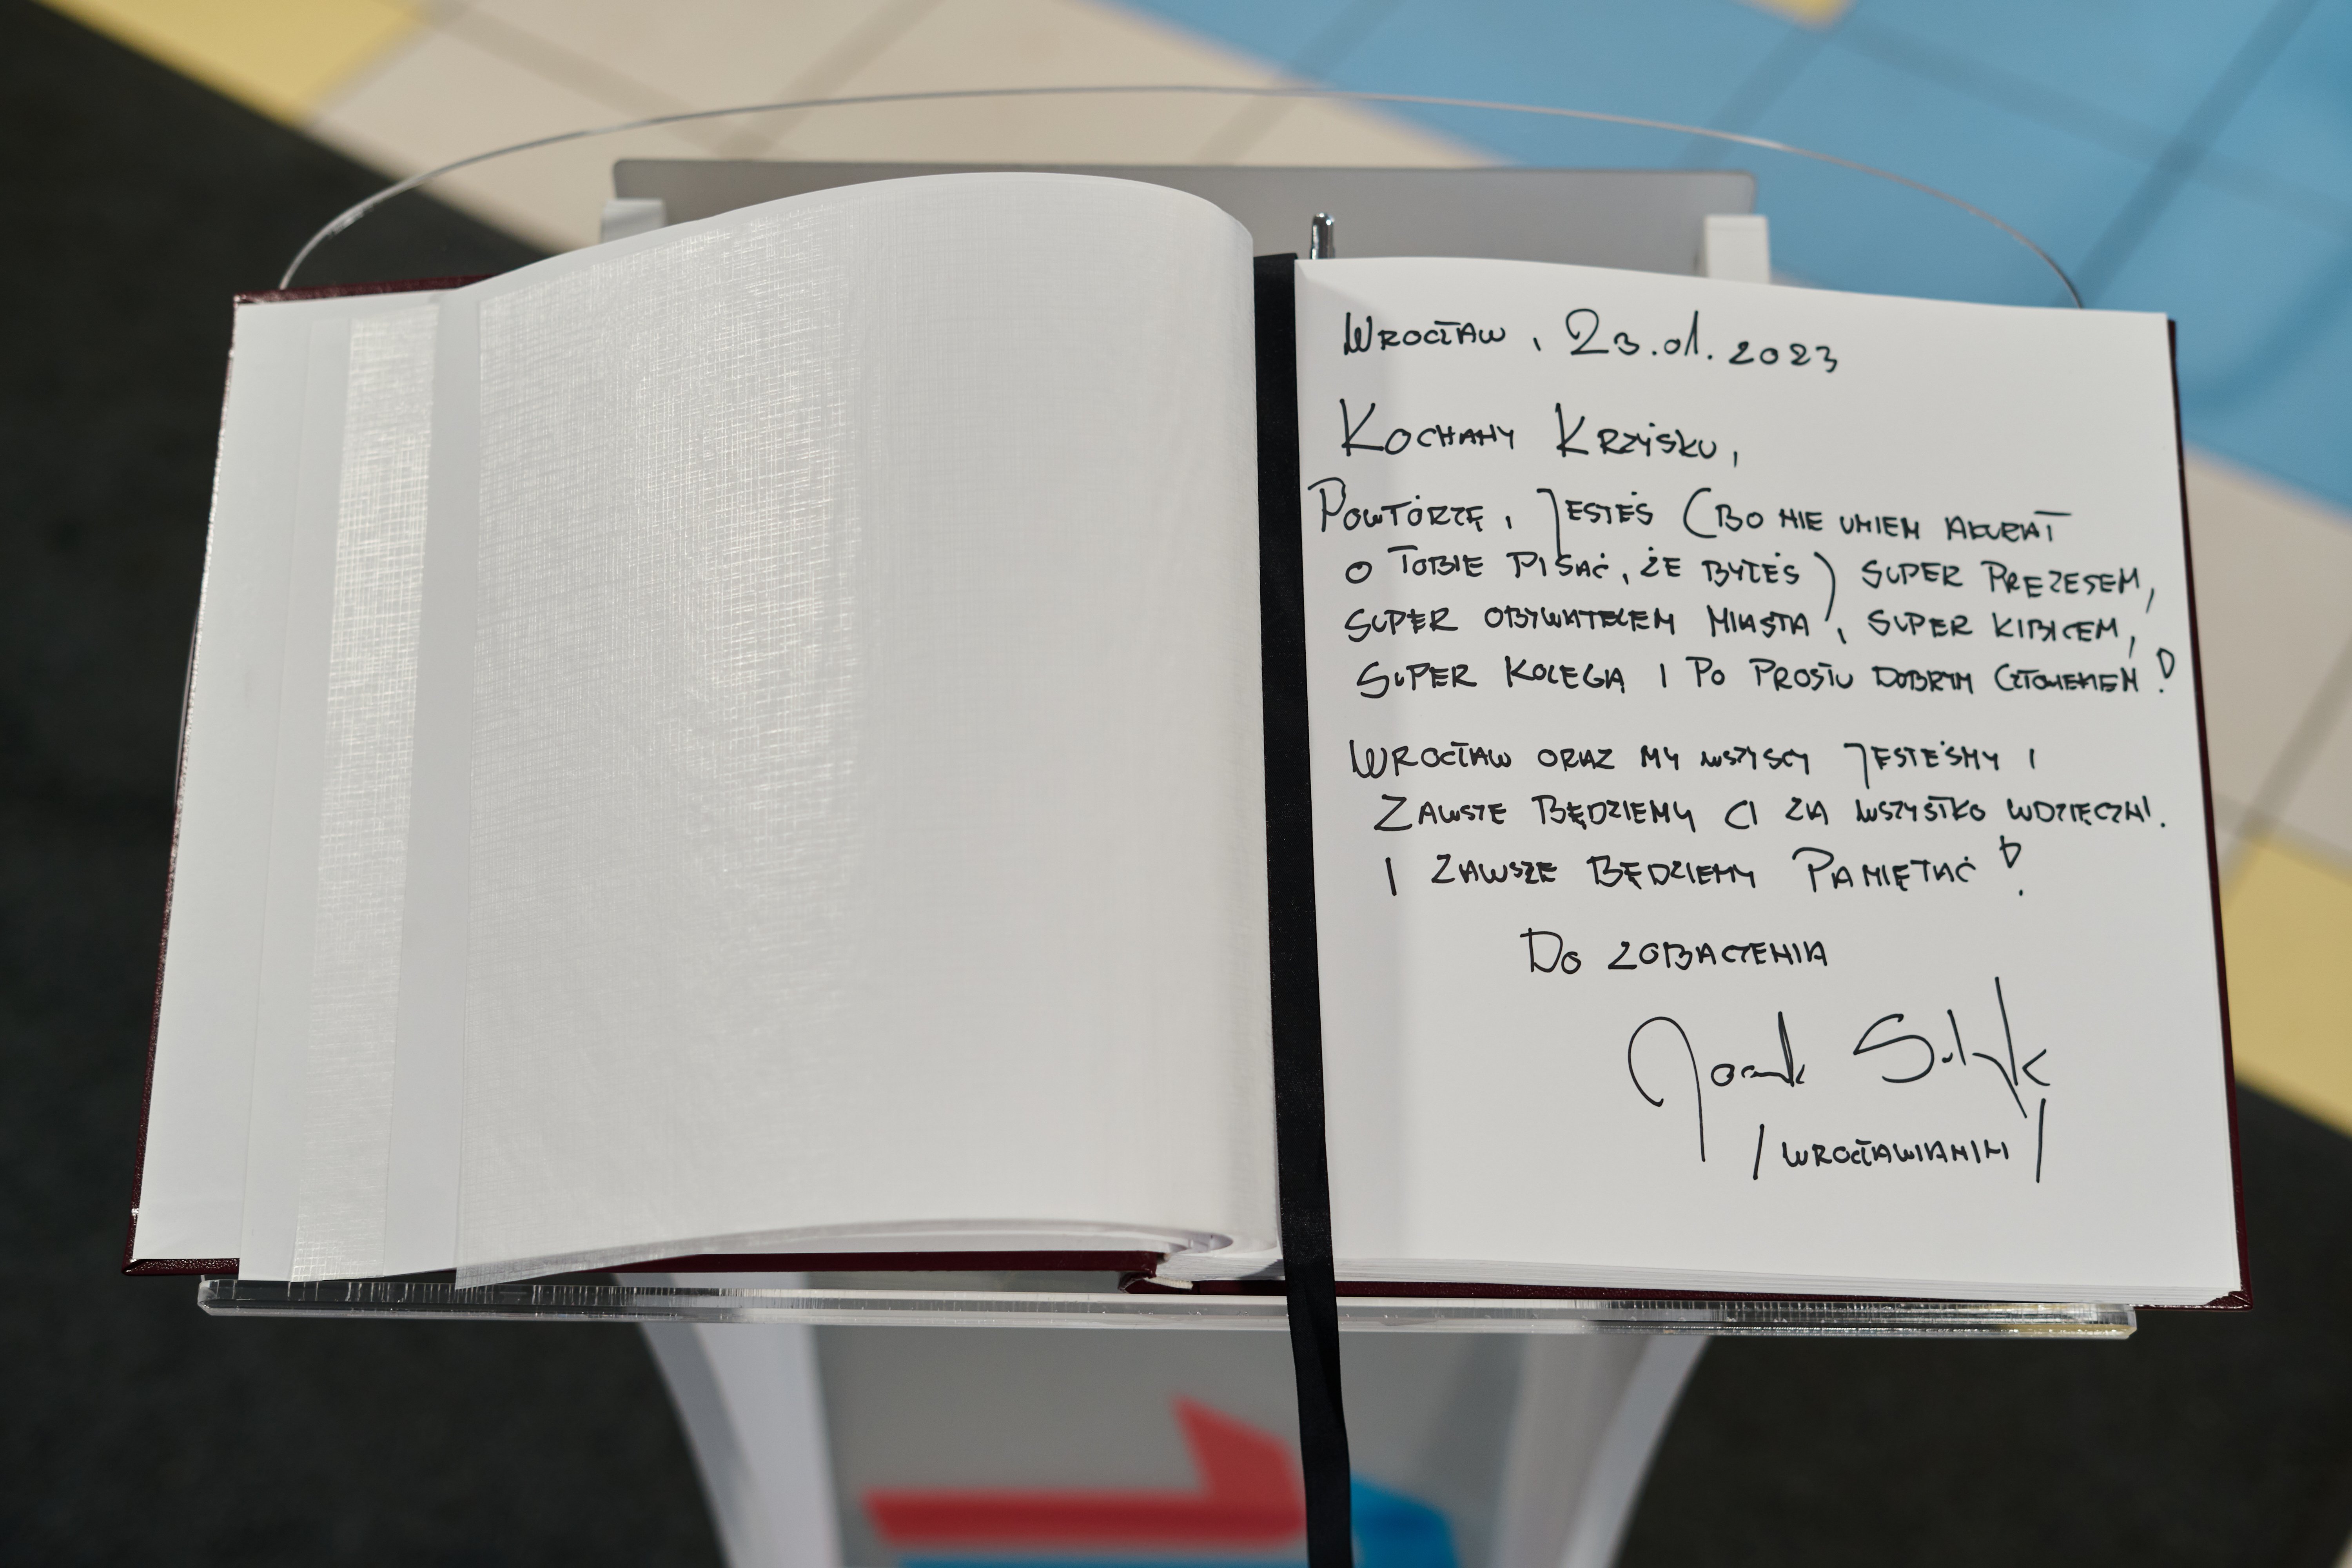 Wrocław, 23.01.2023
Kochany Krzyśku,
Powtórzę, jesteś (bo nie umiem akurat
o Tobie pisać, że byłeś) super prezesem,
super obywatelem miasta, super kibicem,
super kolegą i po prostu dobrym człowiekiem!
Wrocław oraz my wszyscy jesteśmy i
zawsze będziemy Ci za wszystko wdzięczni.
I zawsze będziemy pamiętać!
Do zobaczenia
Jacek Sutryk
/wrocławianin/